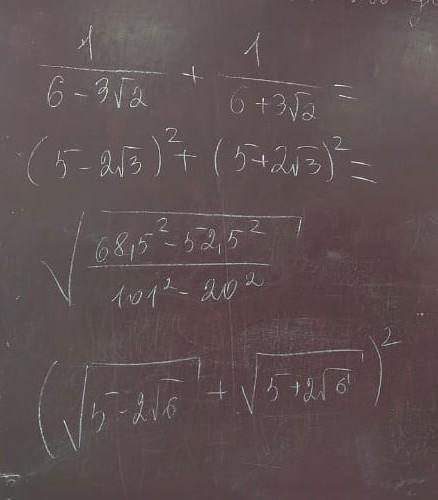 1/(6-3√2) + 1/(6+3√2) =
(5-2√3)² + (5+2√3)² =
√((68,5²-52,5²)/(101²-20²))
(√(5-2√6) + √(5+2√6))²